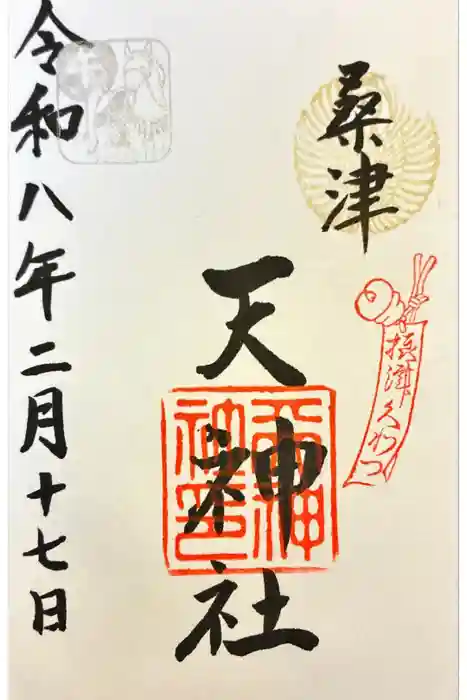 桑津
摂津くわつ
天神社
天神社印
令和八年二月十七日
午